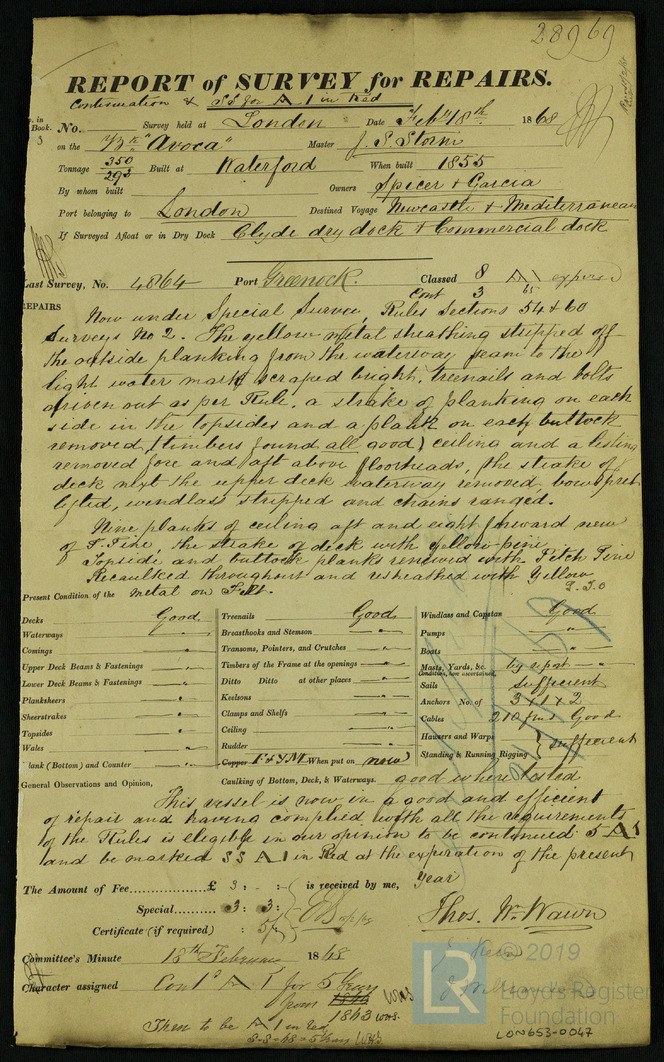 28969
REPORT of SURVEY for REPAIRS.
Continuation & SS for A 1 in Red
No. Survey held at London Date Feby 18th 1868
on the Bk "Avoca" Master J. S. Storm
Tonnage 350/293 Built at Waterford When built 1855
By whom built Owners Spicer & Garcia
Port belonging to London Destined Voyage Newcastle & Mediterranean
If Surveyed Afloat or in Dry Dock Clyde dry dock & Commercial dock
Last Survey, No. 4864 Port Greenock. Classed 8 A 1 expired
Cont 3 65
REPAIRS
Now under Special Survey, Rules Sections 54 & 60
Surveys No 2. The yellow metal sheathing stripped off
the outside planking from the waterway seam to the
light water mark scraped bright, treenails and bolts
driven out as per Rule. a strake of planking on each
side in the topsides and a plank on each buttock
removed, (timbers found all good) ceiling and a listing
removed fore and aft above floorheads, the strake of
deck next the upper deck waterway removed, bowsprit
lifted, windlass stripped and chains ranged.
Nine planks of ceiling aft and eight forward new
of P. Pine, the strake of deck with yellow pine
Topside and buttock planks renewed with Pitch Pine
Recaulked throughout and resheathed with Yellow
Present Condition of the Metal on Felt. P.T.O
Decks Good Treenails Good Windlass and Capstan Good
Waterways " Breasthooks and Stemson " Pumps "
Comings " Transoms, Pointers, and Crutches " Boats "
Upper Deck Beams & Fastenings " Timbers of the Frame at the openings " Masts, Yards, &c. by report "
Condition, how ascertained.
Lower Deck Beams & Fastenings " Ditto Ditto at other places " Sails sufficient
Planksheers " Keelsons " Anchors No. of 3 + 1 + 2
Sheerstrakes " Clamps and Shelfs " Cables 210 fms Good
Topsides " Ceiling " Hawsers and Warps } sufficient
Wales " Rudder " Standing & Running Rigging
Plank (Bottom) and Counter " Copper F & YM When put on now
General Observations and Opinion, Caulking of Bottom, Deck, & Waterways. good where tested
This vessel is now in a good and efficient
of repair and having complied with all the requirements
of the Rules is eligible in our opinion to be continued 5 A 1
and be marked SS A 1 in Red at the expiration of the present
year
The Amount of Fee £ 3 : - : is received by me,
Special 3 : 3 :
Certificate (if required) : 5/
Thos. W. Wawn
Committee's Minute 18th February 1868
Character assigned Contd A 1 for 5 Years
from 1863 WMS
Then to be A 1 in Red
LR © 2019
Lloyd's Register
Foundation
LON653-0047